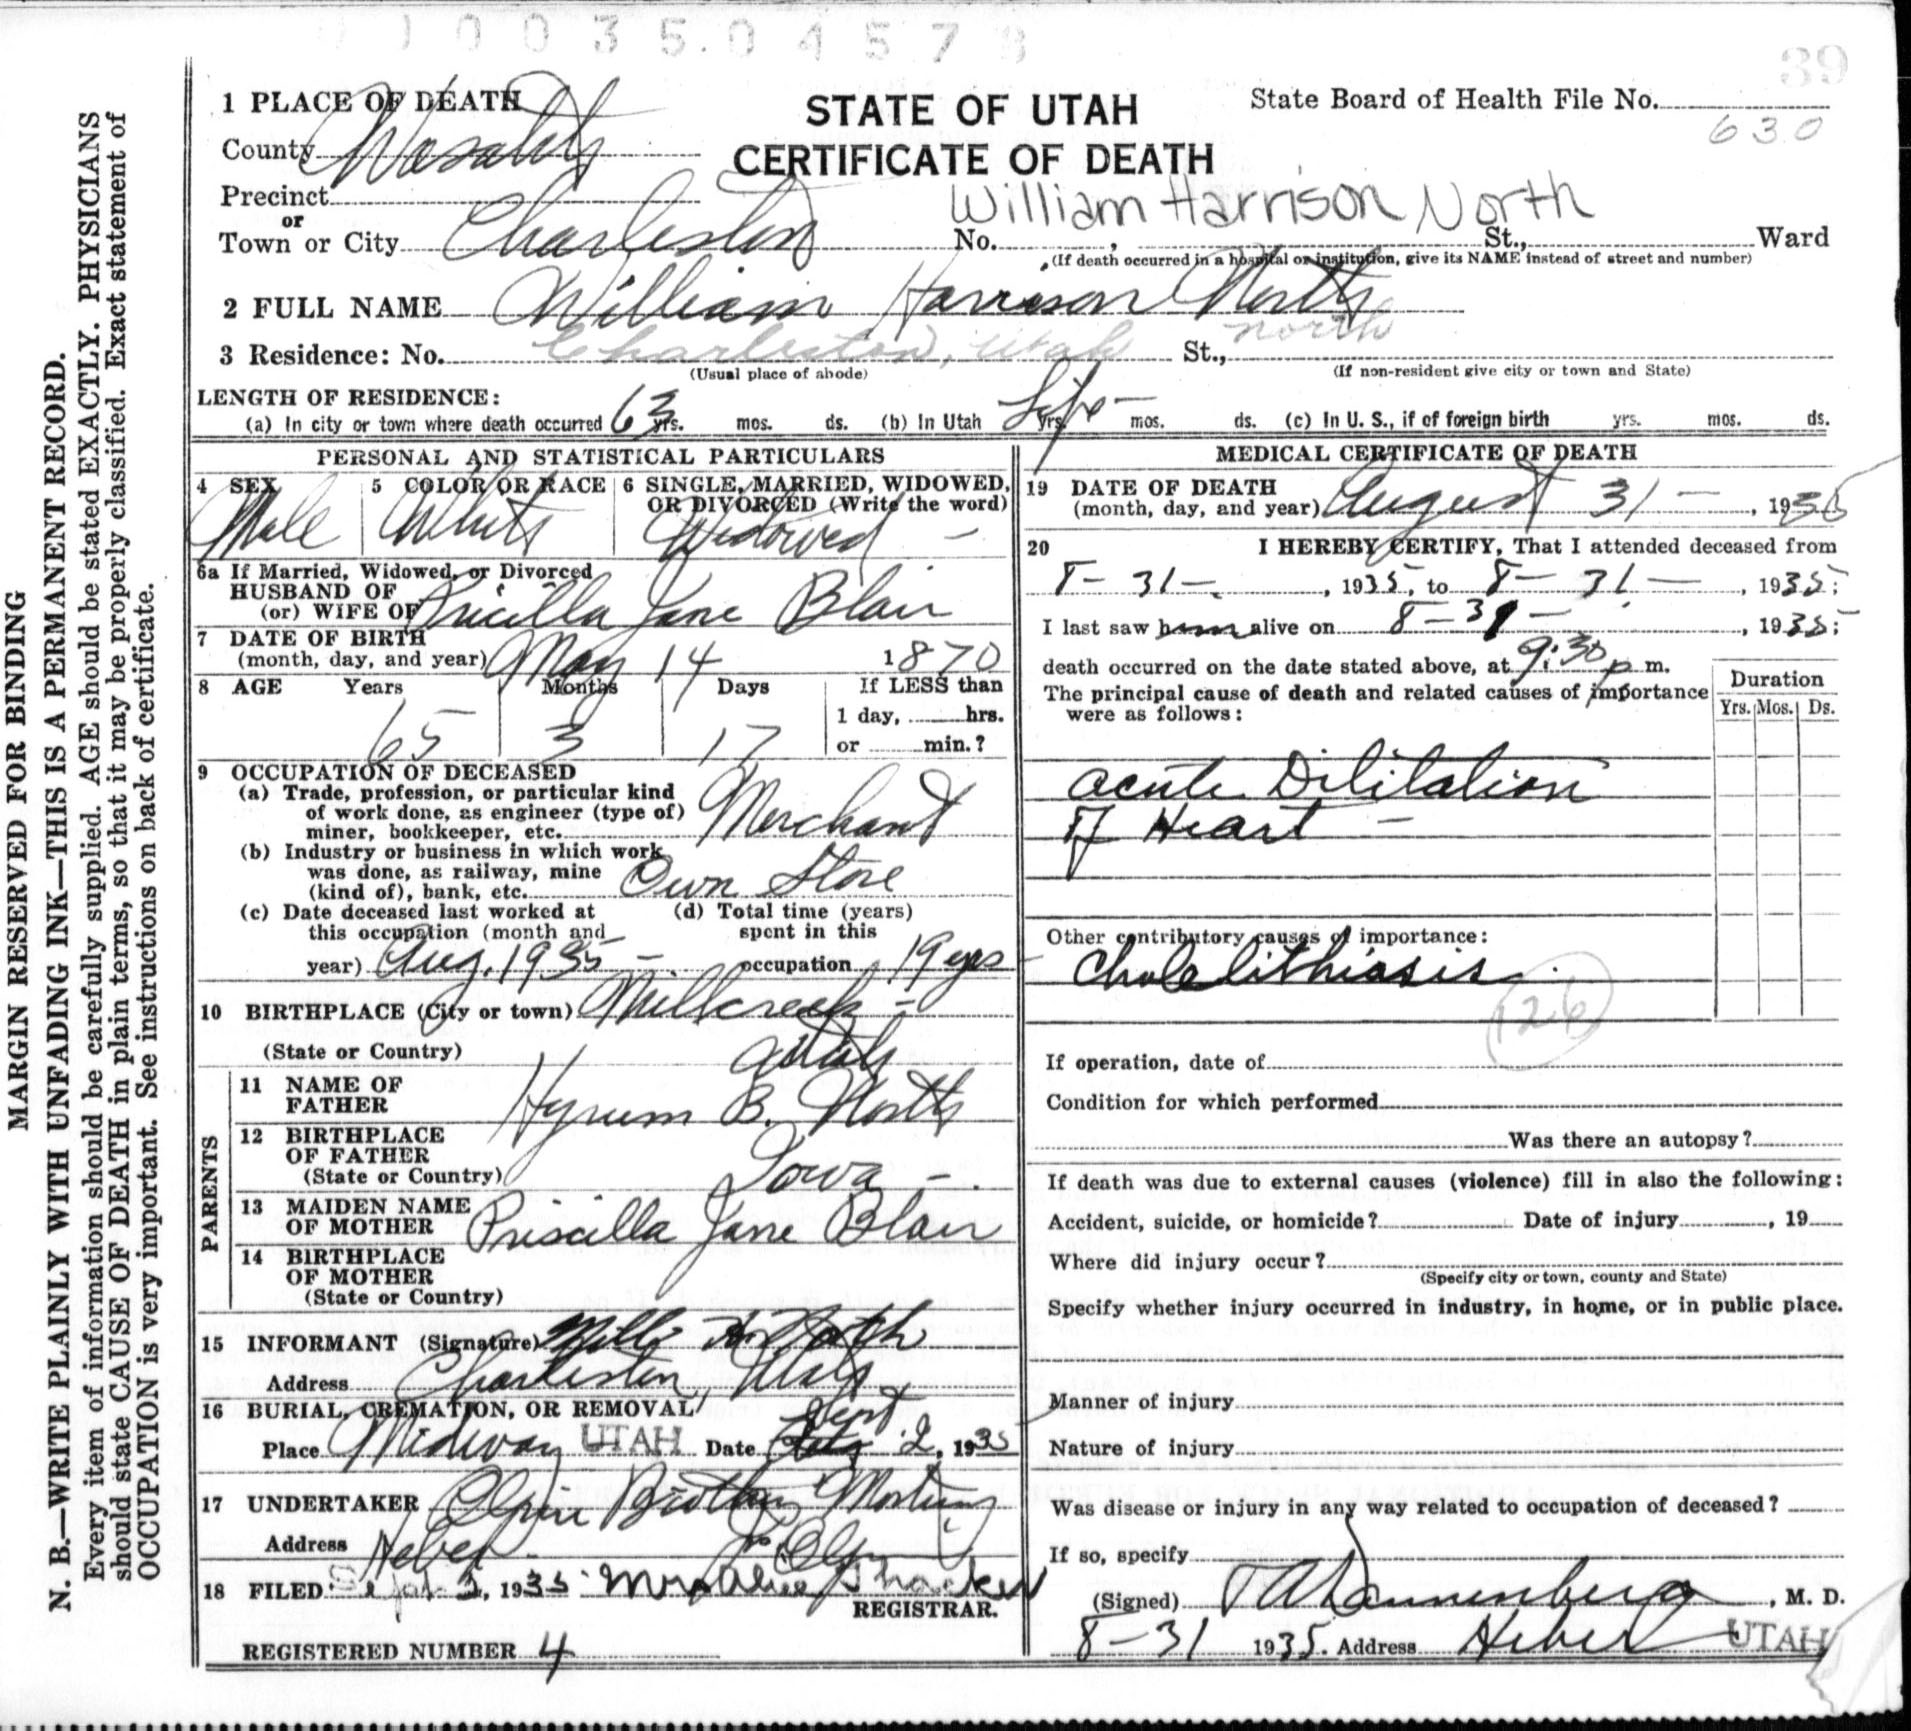 0 1 0 0 3 5 0 4 5 7 8
39
1 PLACE OF DEATH
County Wasatch
Precinct
or
Town or City Charleston
STATE OF UTAH
CERTIFICATE OF DEATH
State Board of Health File No.
630
William Harrison North
No. , St., Ward
(If death occurred in a hospital or institution, give its NAME instead of street and number)
2 FULL NAME William Harrison North
north
3 Residence: No. Charleston, Utah St.,
(Usual place of abode) (If non-resident give city or town and State)
LENGTH OF RESIDENCE:
(a) In city or town where death occurred 63 yrs. mos. ds. (b) In Utah Life- yrs. mos. ds. (c) In U. S., if of foreign birth yrs. mos. ds.
PERSONAL AND STATISTICAL PARTICULARS
4 SEX Male
5 COLOR OR RACE White
6 SINGLE, MARRIED, WIDOWED,
OR DIVORCED (Write the word)
Widowed -
6a If Married, Widowed, or Divorced
HUSBAND OF
(or) WIFE OF Pricilla Jane Blair
7 DATE OF BIRTH
(month, day, and year) May 14 1870
8 AGE Years Months Days If LESS than
1 day, hrs.
65 3 17
or min.?
9 OCCUPATION OF DECEASED
(a) Trade, profession, or particular kind
of work done, as engineer (type of)
miner, bookkeeper, etc. Merchant
(b) Industry or business in which work
was done, as railway, mine
(kind of), bank, etc. Own Store
(c) Date deceased last worked at
this occupation (month and
year) Aug. 1935 -
(d) Total time (years)
spent in this
occupation 19 yrs -
10 BIRTHPLACE (City or town) Millcreek -
(State or Country) Utah
PARENTS
11 NAME OF
FATHER Hyrum B. North
12 BIRTHPLACE
OF FATHER
(State or Country) Iowa -.
13 MAIDEN NAME
OF MOTHER Priscilla Jane Blair
14 BIRTHPLACE
OF MOTHER
(State or Country)
15 INFORMANT (Signature) H. North
Address Charleston, Utah
16 BURIAL, CREMATION, OR REMOVAL
Sept
Place Midway UTAH Date 2, 1935
17 UNDERTAKER Olpin Brothers Mortuary
Address Heber
18 FILED Sept 3, 1935 Mrs Alice Thacker
REGISTRAR.
REGISTERED NUMBER 4
MEDICAL CERTIFICATE OF DEATH
19 DATE OF DEATH
(month, day, and year) August 31 - , 1935
20 I HEREBY CERTIFY, That I attended deceased from
8 - 31 - , 1935, to 8 - 31 - , 1935;
I last saw him alive on 8 - 31 - , 1935;
death occurred on the date stated above, at 9:30 p m.
The principal cause of death and related causes of importance
were as follows:
Duration
Yrs. Mos. Ds.
Acute Dilitation
of Heart -
Other contributory causes of importance:
Cholelithiasis.
126
If operation, date of
Condition for which performed
Was there an autopsy?
If death was due to external causes (violence) fill in also the following:
Accident, suicide, or homicide? Date of injury , 19
Where did injury occur?
(Specify city or town, county and State)
Specify whether injury occurred in industry, in home, or in public place.
Manner of injury
Nature of injury
Was disease or injury in any way related to occupation of deceased?
If so, specify
(Signed) Dannenberg , M. D.
8 - 31 1935. Address Heber UTAH
MARGIN RESERVED FOR BINDING
N. B.—WRITE PLAINLY WITH UNFADING INK—THIS IS A PERMANENT RECORD.
Every item of information should be carefully supplied. AGE should be stated EXACTLY. PHYSICIANS
should state CAUSE OF DEATH in plain terms, so that it may be properly classified. Exact statement of
OCCUPATION is very important. See instructions on back of certificate.